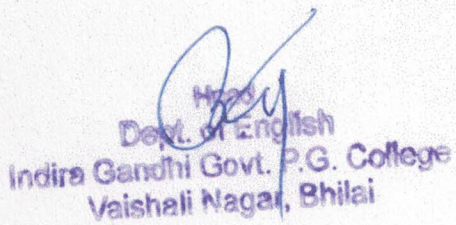 Head
Dept. of English
Indira Gandhi Govt. P.G. College
Vaishali Nagar, Bhilai